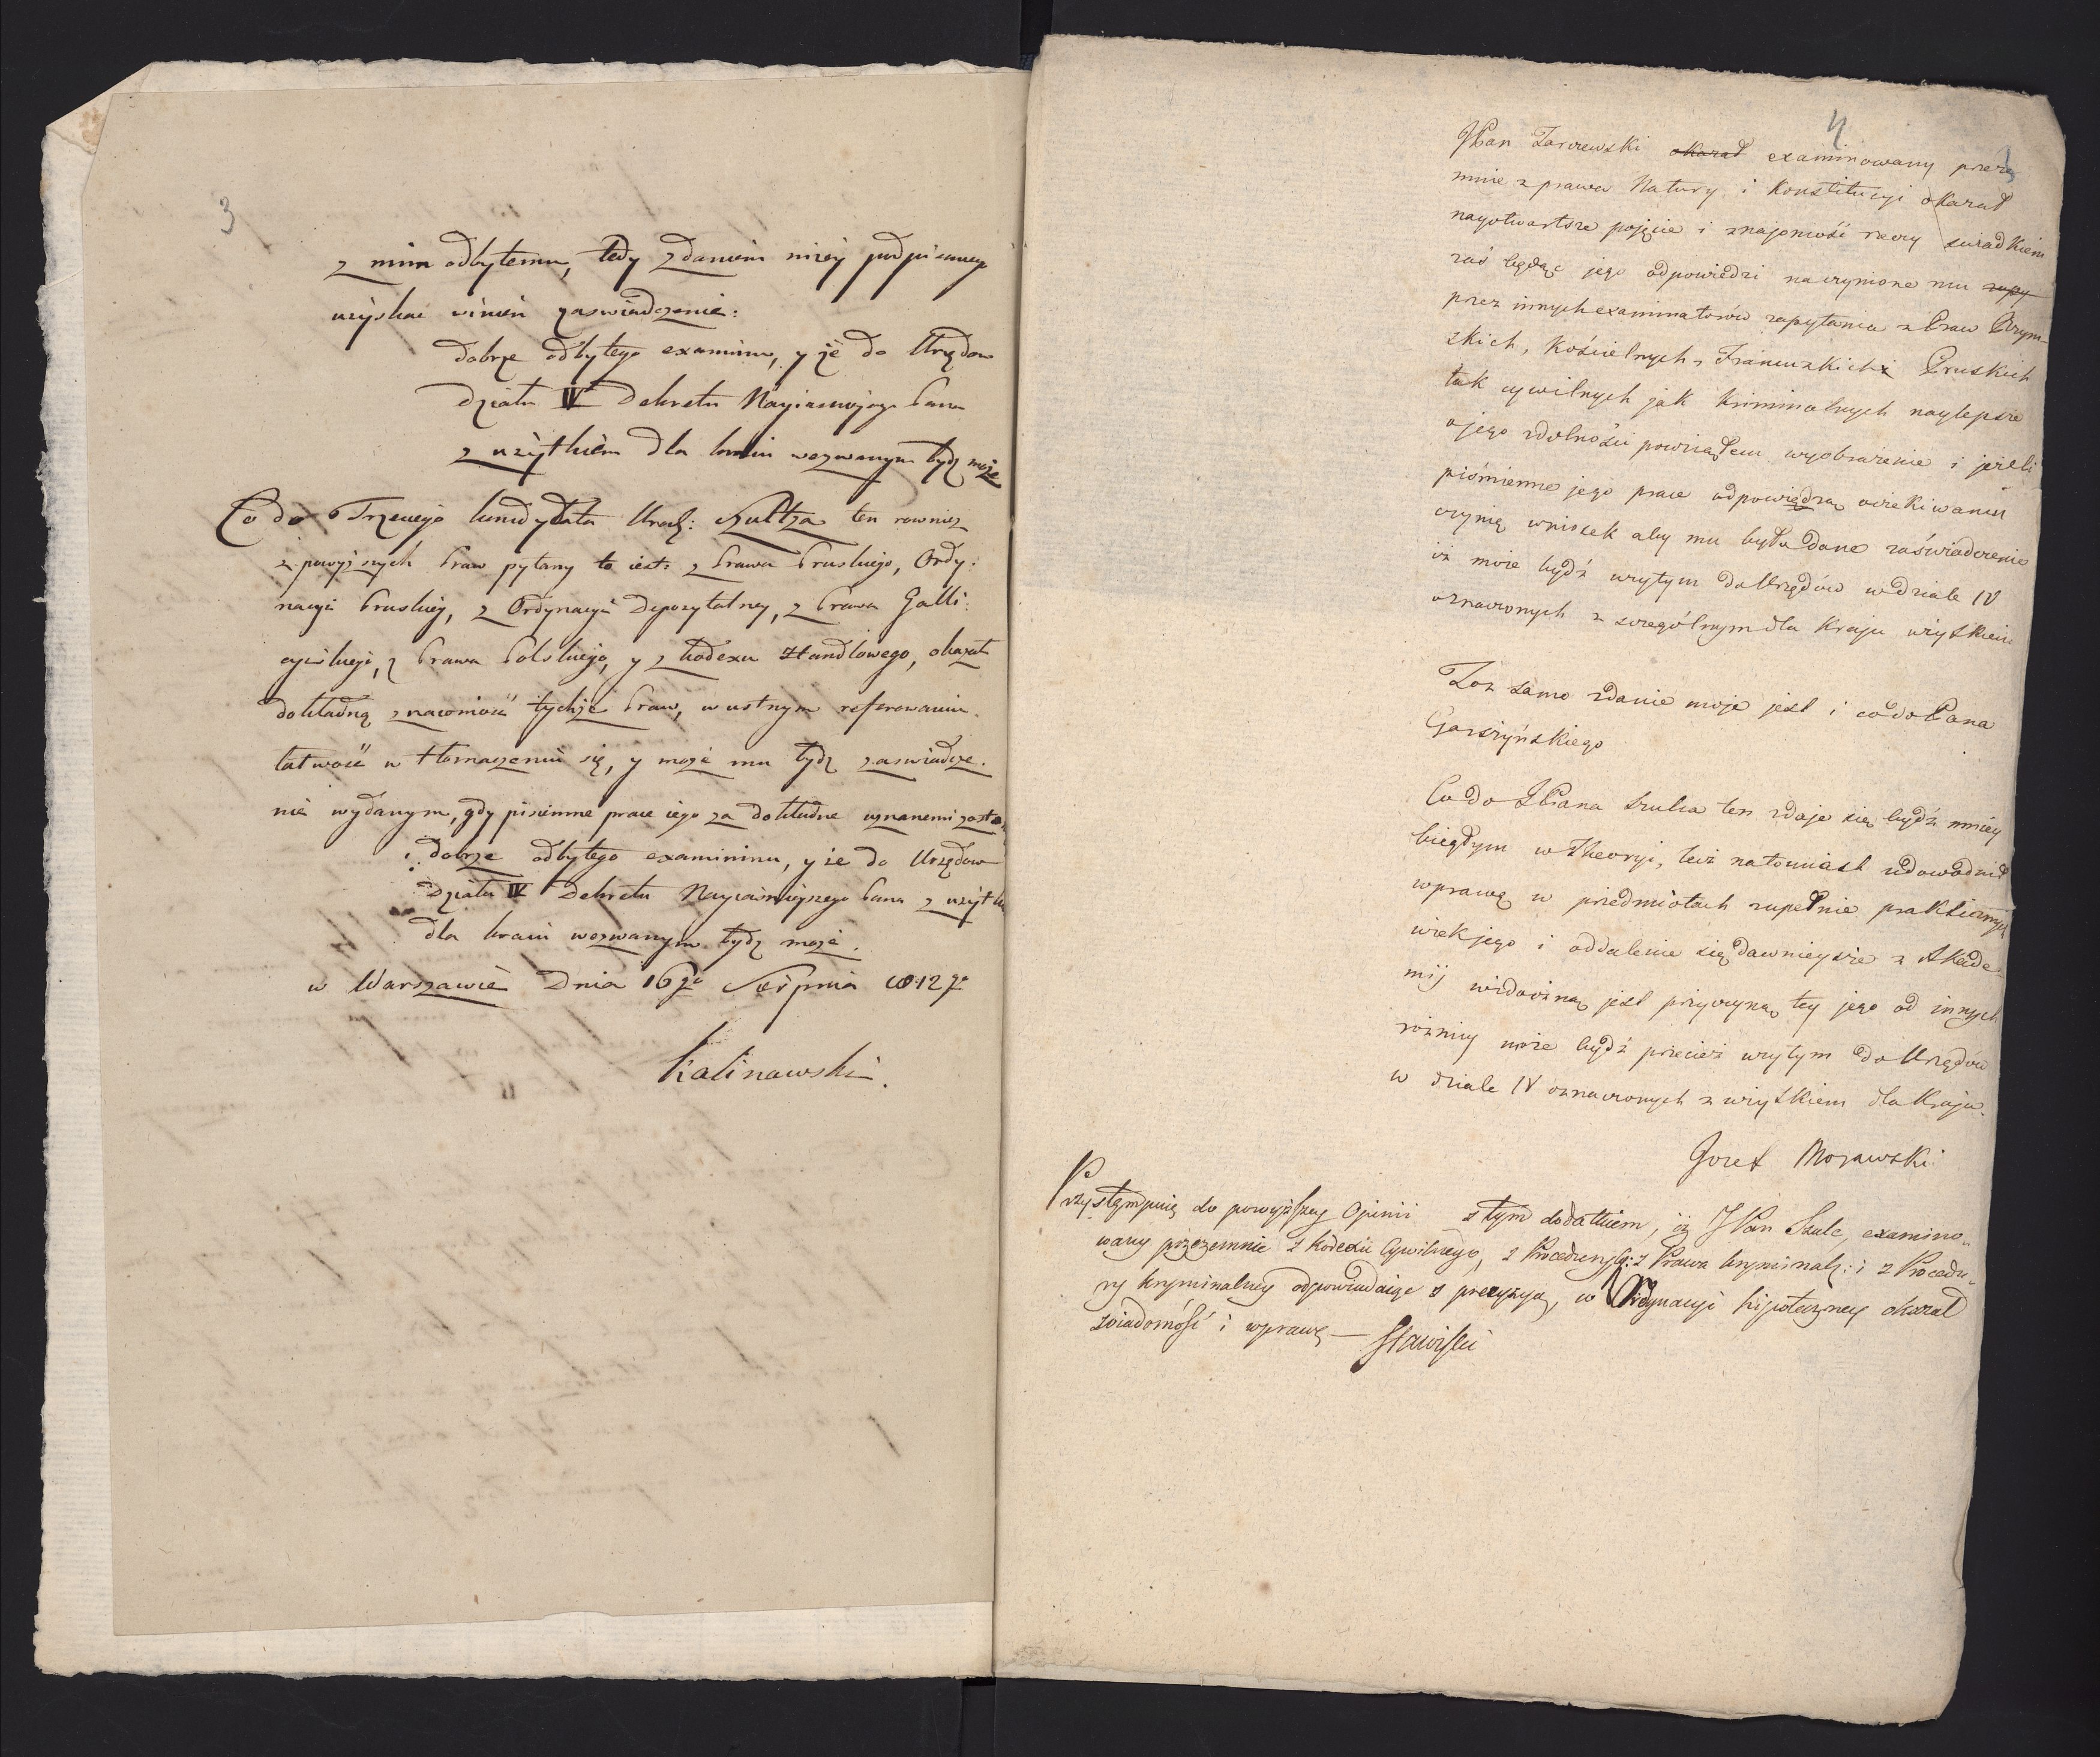 3
z nim odbytemu, tedy zdaniem niżey podpisanego
uzyskać winien zaswiadczenie:
dobrze odbytego examinu, y że do Urzędow
Działu IV Dekretu Nayiasnieyszego Pana
z użytkiem dla kraiu wezwanym bydz może
Co do Trzeciego kandydata Urodz: Szultza ten rownież
z powyższych Praw pytany to iest: z Prawa Pruskiego, Ordy:
nacyi Pruskiey, z Ordynacyi Depozytalney, z Prawa Galli:
cyiskiego, z Prawa Polskiego, y z Kodexu Handlowego, okazał
dokładną znaiomość tychże Praw, w ustnym referowaniu
łatwość w tłomaczeniu się, y może mu bydz zaswiadcze.
nie wydanym, gdy pisemne prace iego za dokładne uznanemi zosta
: dobrze odbytego examininu, y że do Urzędow
Działu IV Dekretu Nayiaśnieyszego Pana z użytk
dla kraiu wezwanym bydz może.
w Warszawie Dnia 16go Sierpnia 1812go
Kalinawski.
4
JPan Zarzewski okazał examinowany przez
mnie z prawa Natury i Konstitucyi okazał
nayotwartsze pojęcie i znajomość rzeczy swiadkiem
zaś będąc jego odpowiedzi na czynione mu zapy
przez innych examinatorów zapytania z Praw Rzym-
skich, Kościelnych, Francuzkich i Pruskich
tak cywilnych jak kriminalnych naylepsze
o jego zdolności powziąłem wyobrażenie i jeżeli
piśmienne jego prace odpowiedzą oczekiwaniu
czynię wniosek aby mu było dane zaświadczenie
iż może bydź użytym do Urzędów w dziale IV
oznaczonych z szczególnym dla Kraju użytkiem
Toż samo zdanie moje jest i co do Pana
Garszyńskiego
Co do JPana Szulca ten zdaje się bydź mniey
biegłym w Theoryi, lecz natomiast udowodnił
wprawę w przedmiotach zupełnie prakticznych
wiek jego i oddalenie się dawnieysze z Akade-
mij widoczną jest przyczyną tey jego od innych
różnicy może bydź przecież użytym do Urzędów
w dziale IV oznaczonych z użytkiem dla Kraju.
Jozef Morawski
Przystęmpuię do powyższey Opinii z tym dodatkiem, iż JPan Szulc, examino-
wany przezemnie z Kodexu Cywilnego, z Procedury Cy: z Prawa kryminal: i z Procedu-
ry kryminalney odpowiadaiąc z precyzyą, w Ordynacyi hipoteczney okazał
wiadomość i wprawę — Sławiski